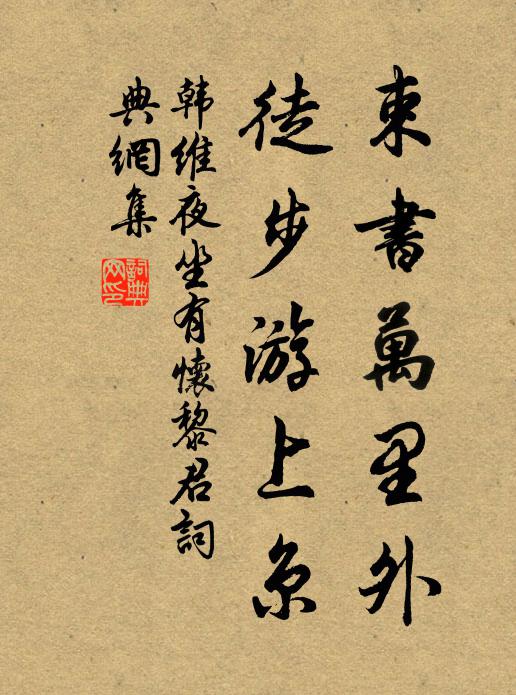 束書萬里外
徒步游上京
韩維夜坐有懷黎君詞
典網集
詞典
网印